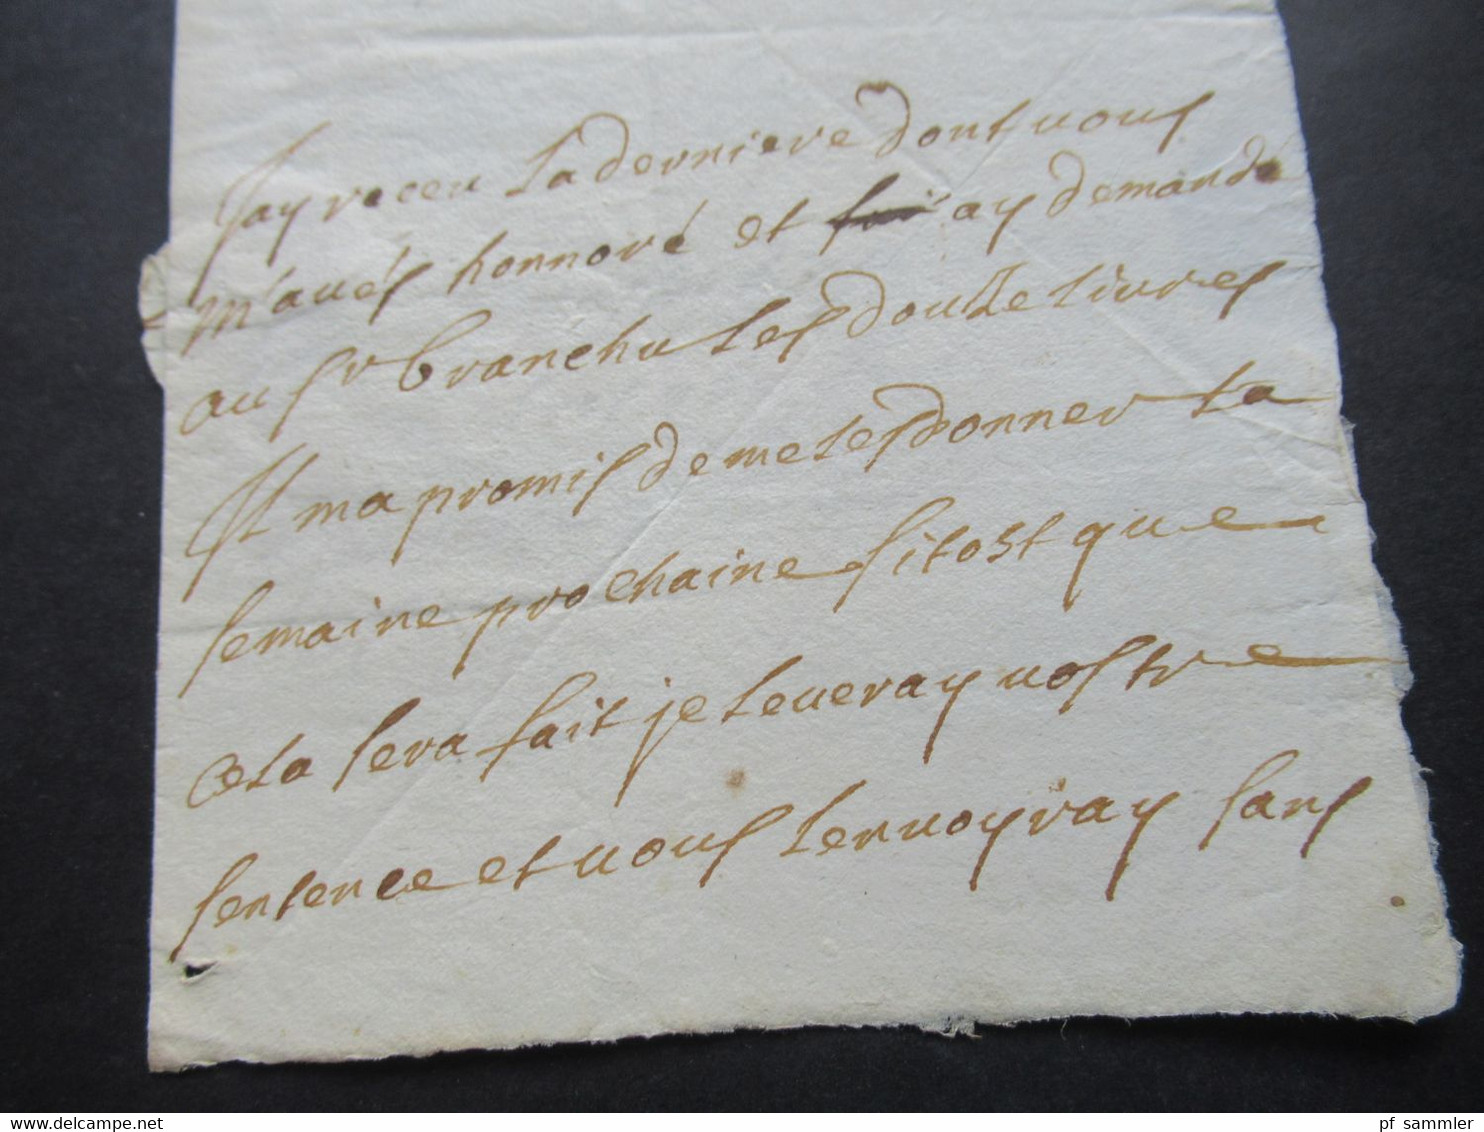 Jay receu La derniere dont vous
m'aués honnoré et ay demandé
au Sr Branchu Les douze Livres
Il ma promis de me Les donner La
semaine prochaine sitost que
cela sera fait je Leveray vostre
sentence et vous Lenvoyray sans
www.delcampe.net
pf_sammler